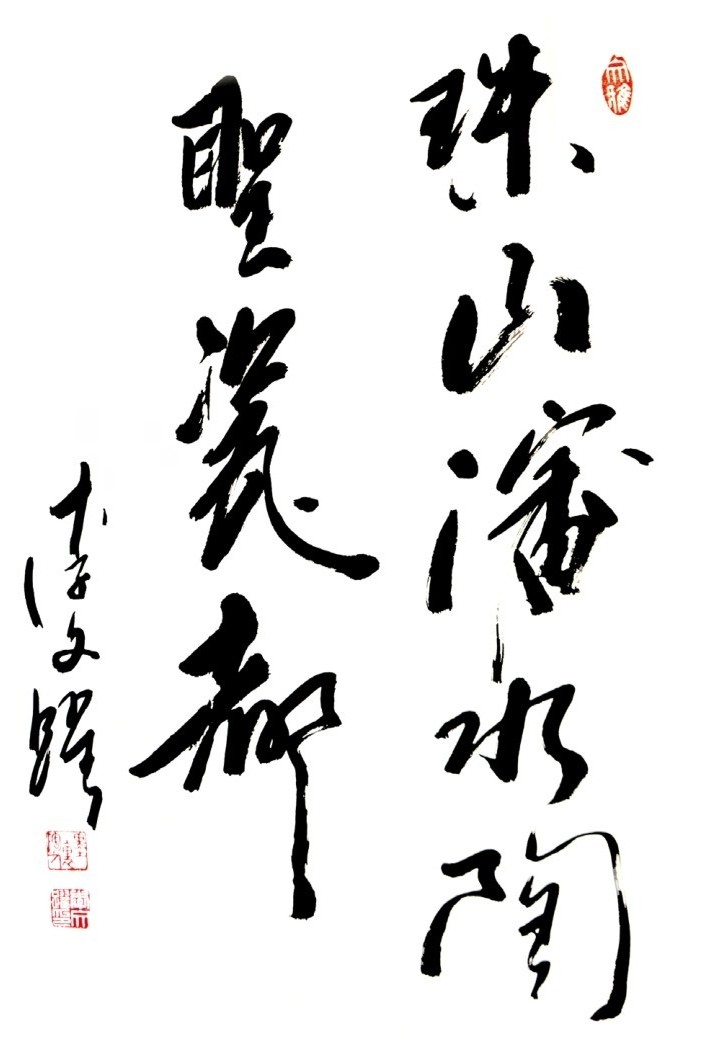 珠山瀋水陶
聖瓷都
李文躍